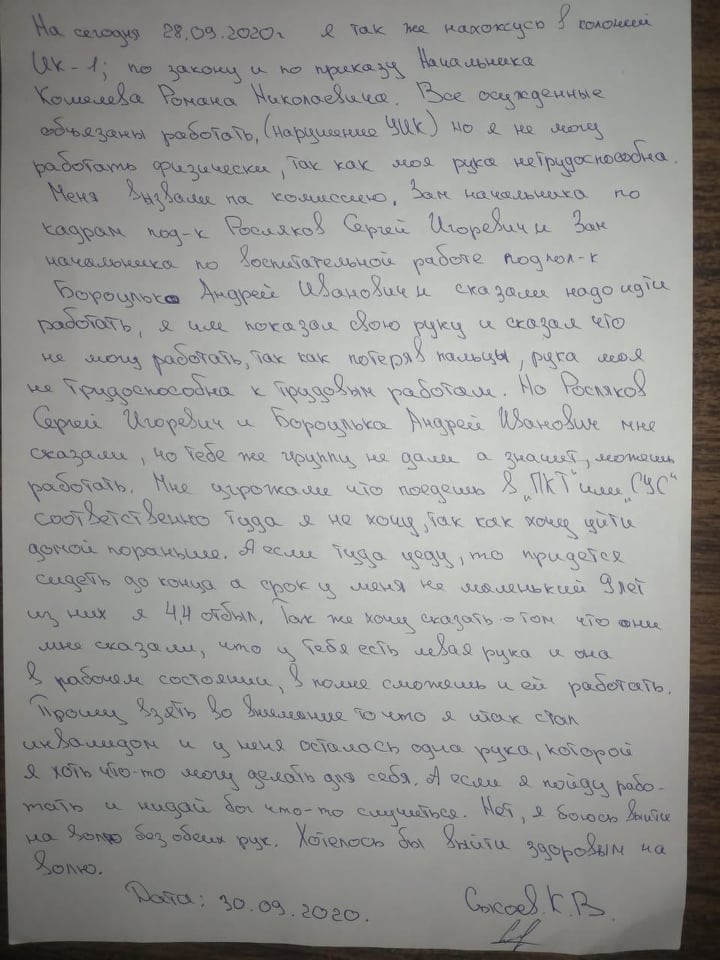 На сегодня 28.09.2020г я так же нахожусь в колонии
Ик-1; по закону и по приказу Начальника
Кошелева Романа Николаевича. Все осужденные
объязаны работать, (нарушение УИК) но я не могу
работать физически, так как моя рука нетрудоспособна.
Меня вызвали на комиссию. Зам начальника по
кадрам под-к Росляков Сергей Игоревич и Зам
начальника по воспитательной работе подпол-к
Бороулько Андрей Иванович и сказали надо идти
работать, я им показал свою руку и сказал что
не могу работать, так как потеряв пальцы, рука моя
не трудоспособна к трудовым работам. Но Росляков
Сергей Игоревич и Бороулька Андрей Иванович мне
сказали, но тебе же группу не дали а значит, можешь
работать. Мне угрожали что поедешь в „ПКТ" или „СУС"
соответственно туда я не хочу, так как хочу уйти
домой пораньше. А если туда уеду, то придется
сидеть до конца а срок у меня не маленький 9 лет
из них я 4,4 отбыл. Так же хочу сказать о том что они
мне сказали, что у тебя есть левая рука и она
в рабочем состоянии, в полне сможешь и ей работать.
Прошу взять во внимание то что я итак стал
инвалидом и у меня осталась одна рука, которой
я хоть что-то могу делать для себя. А если я пойду рабо-
тать и нидай бог что-то случиться. Нет, я боюсь выйти
на волю без обеих рук. Хотелось бы выйти здоровым на
волю.
Дата: 30.09.2020. К.В.